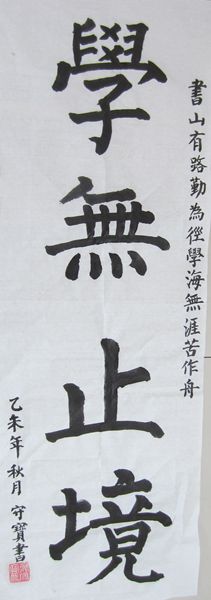 書山有路勤為徑學海無涯苦作舟
學無止境
乙未年秋月守寶書